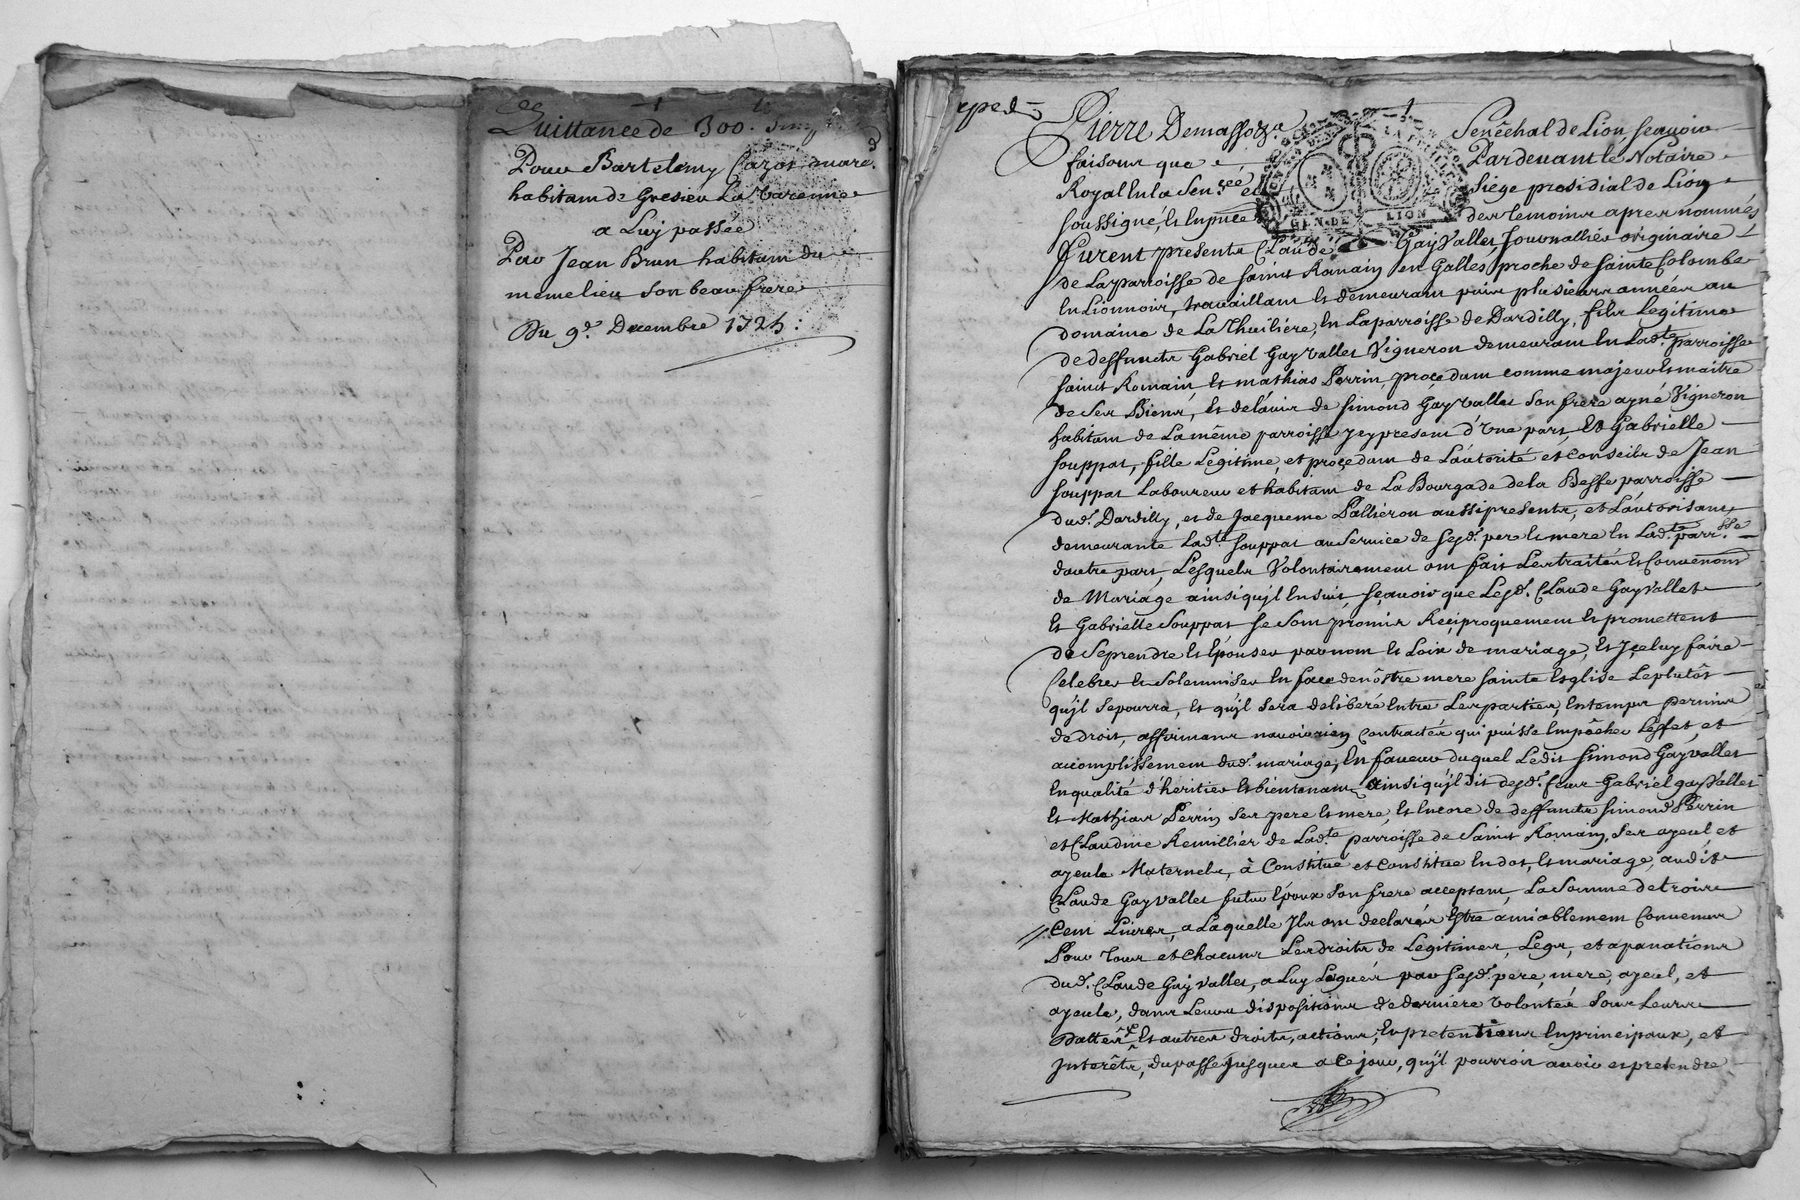 Quittance de 300.
Pour Bartelemy Cazot marc.d
habitant de Gresieu La Varenne
a Luy passée
Par Jean Brun habitant du
meme lieu son beau frere
Du 9.e Decembre 1725:
exped.
Pierre Demasso Senêchal de Lion sçavoir
faisons que Pardevant le Notaire
Royal en la Sen.ceé et Siège presidial de Lion
soussigné, et en presce des temoins apres nommés
furent presents Claude Gayvallet, Journallier originaire
de La parroisse de saint Romain en Galles, proche de sainte Colombe
en Lionnois, travaillant et demeurant puis plusieurs années au
domaine de La Thuilière, en La parroisse de Dardilly, fils Legitime
de deffuncts Gabriel Gayvallet Vigneron demeurant en Lad.te parroisse
saint Romain, et mathias Perrin, procedant comme majeur et maitre
de ses Biens, et de l'avis de simond Gayvallet son frere ayné Vigneron
habitant de La même parroisse Jcy present d'Vne part, Et Gabrielle
souppat, fille Legitime, et procedant de L'autorité et conseils de Jean
souppat Laboureur et habitant de La Bourgade de la Besse parroisse
dud.t Dardilly, et de Jacqueme Palliéron aussi presents, et L'autorisant,
demeurante Lad.te souppat au service de sesd.t pere et mere en Lad.te parr.sse
d'autre part, Lesquels Volontairement ont fait Les traités et Convenons
de Mariage ainsi qu'jl Ensuit sçavoir que Lesd.t Claude Gayvallet
et Gabrielle Souppat se sont promis Réciproquement et promettent
de Se prendre et Epouser par nom et Loix de mariage, et Jceluy faire
Celebrer et Solemniser en face de nôstre mere sainte Esglise Le plutôt
qu'jl se pourra, et qu'jl sera deliberé entre Les parties, en temps permis
de droit, affirmans n'avoir rien contracté qui puisse Empêcher L'effet, et
accomplissement dud.t mariage; En faveur duquel Ledit simond Gayvallet
En qualité d'heritier et bientenant ainsi qu'jl dit desd.t feus Gabriel gayVallet
et Mathias Perrin ses pere et mere, et encore de deffuncts simond Perrin
et Claudine Remillier de Lad.te parroisse de Saint Romain, ses ayeul et
ayeule Maternels, à Constitué et constitue en dot, et mariage, audit
Claude Gayvallet futur Epoux son frere acceptant, La Somme de trois
Cent Livres, a Laquelle Jls ont declarés Estre amiablement Convenus
Pour Tous et chacuns Les droits de Legitimes, Legs, et apanations
dud.t Claude Gayvallet, a Luy Legués par sesd.t pere, mere, ayeul, et
ayeule, dans Leurs dispositions de derniere volonté sous Leurs
dattes, Et autres droits, actions, et pretentions en principaux, et
Jnterêts, du passé Jusques a Ce jour, qu'jl pourroit avoir et pretendre